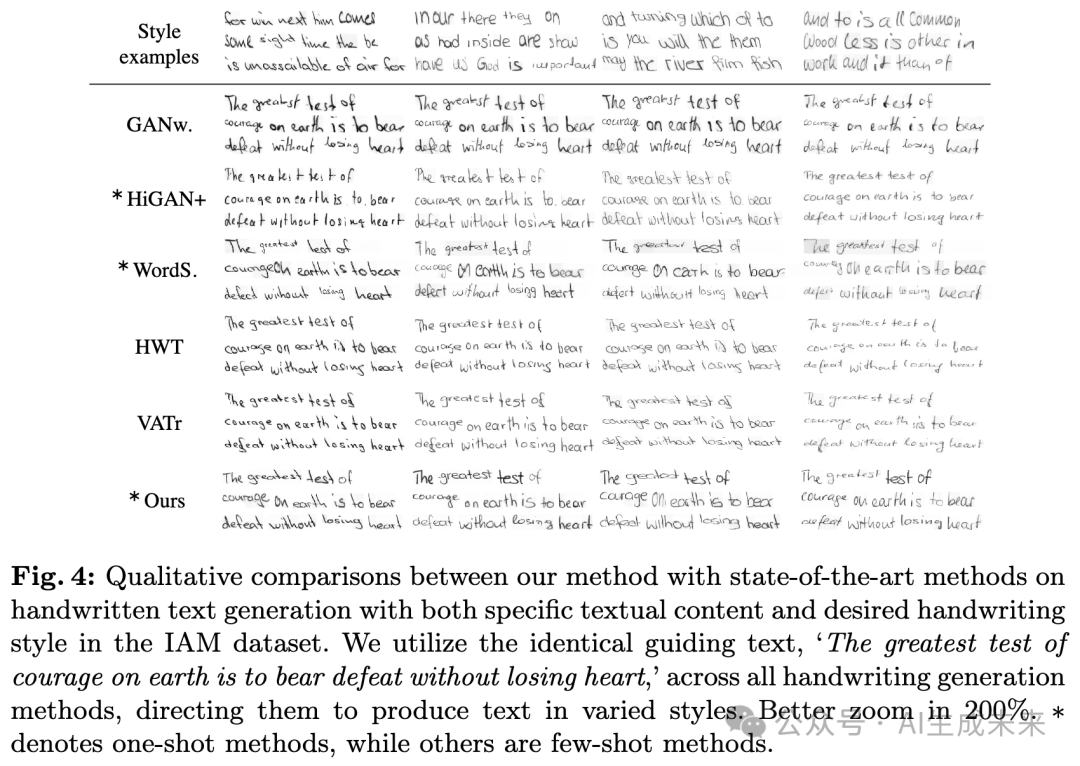 Style examples
for win next him comes
some sight time the be
is unassailable of air for
in our there they on
as had inside are show
have us God is important
and turning which of to
is you will the them
may the river film fish
and to is all common
Wood less is other in
work and it than of
GANw.
The greatest test of
courage on earth is to bear
defeat without losing heart
The greatest test of
courage on earth is to bear
defeat without losing heart
The greatest test of
courage on earth is to bear
defeat without losing heart
The greatest test of
courage on earth is to bear
defeat without losing heart
* HiGAN+
The greatest test of
courage on earth is to bear
defeat without losing heart
The greatest test of
courage on earth is to. bear
defeat without losing heart
The greatest test of
courage on earth is to bear
defeat without losing heart
The greatest test of
courage on earth is to bear
defeat without losing heart
* WordS.
The greatest test of
on earth is to bear
without losing heart
The greatest test of
courage on earth is to bear
defect without losing heart
The test of
courage on earth is to bear
losing heart
The greatest test of
on earth is to bear
without losing heart
HWT
The greatest test of
courage on earth is to bear
defeat without losing heart
The greatest test of
courage on earth is to bear
defeat without losing heart
The greatest test of
courage on earth is to bear
defeat without losing heart
The greatest test of
courage on earth is to bear
defeat without losing heart
VATr
The greatest test of
courage on earth is to bear
defeat without losing heart
The greatest test of
courage on earth is to bear
defeat without losing heart
The greatest test of
courage on earth is to bear
defeat without losing heart
The greatest test of
courage on earth is to bear
defeat without losing heart
* Ours
The greatest test of
courage on earth is to bear
defeat without losing heart
The greatest test of
courage on earth is to bear
defeat without losing heart
The test of
courage on earth is to bear
defeat without losing heart
The greatest test of
courage on earth is to bear
defeat without losing heart
Fig. 4: Qualitative comparisons between our method with state-of-the-art methods on
handwritten text generation with both specific textual content and desired handwriting
style in the IAM dataset. We utilize the identical guiding text, ‘The greatest test of
courage on earth is to bear defeat without losing heart,’ across all handwriting generation
methods, directing them to produce text in varied styles. Better zoom in 200%. *
denotes one-shot methods, while others are few-shot methods.
公众号 · AI生成未来